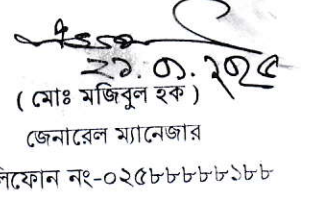 ২১.০১.২০২৫
( মোঃ মজিবুল হক )
জেনারেল ম্যানেজার
লিফোন নং-০২৫৮৮৮৮৮১৮৮